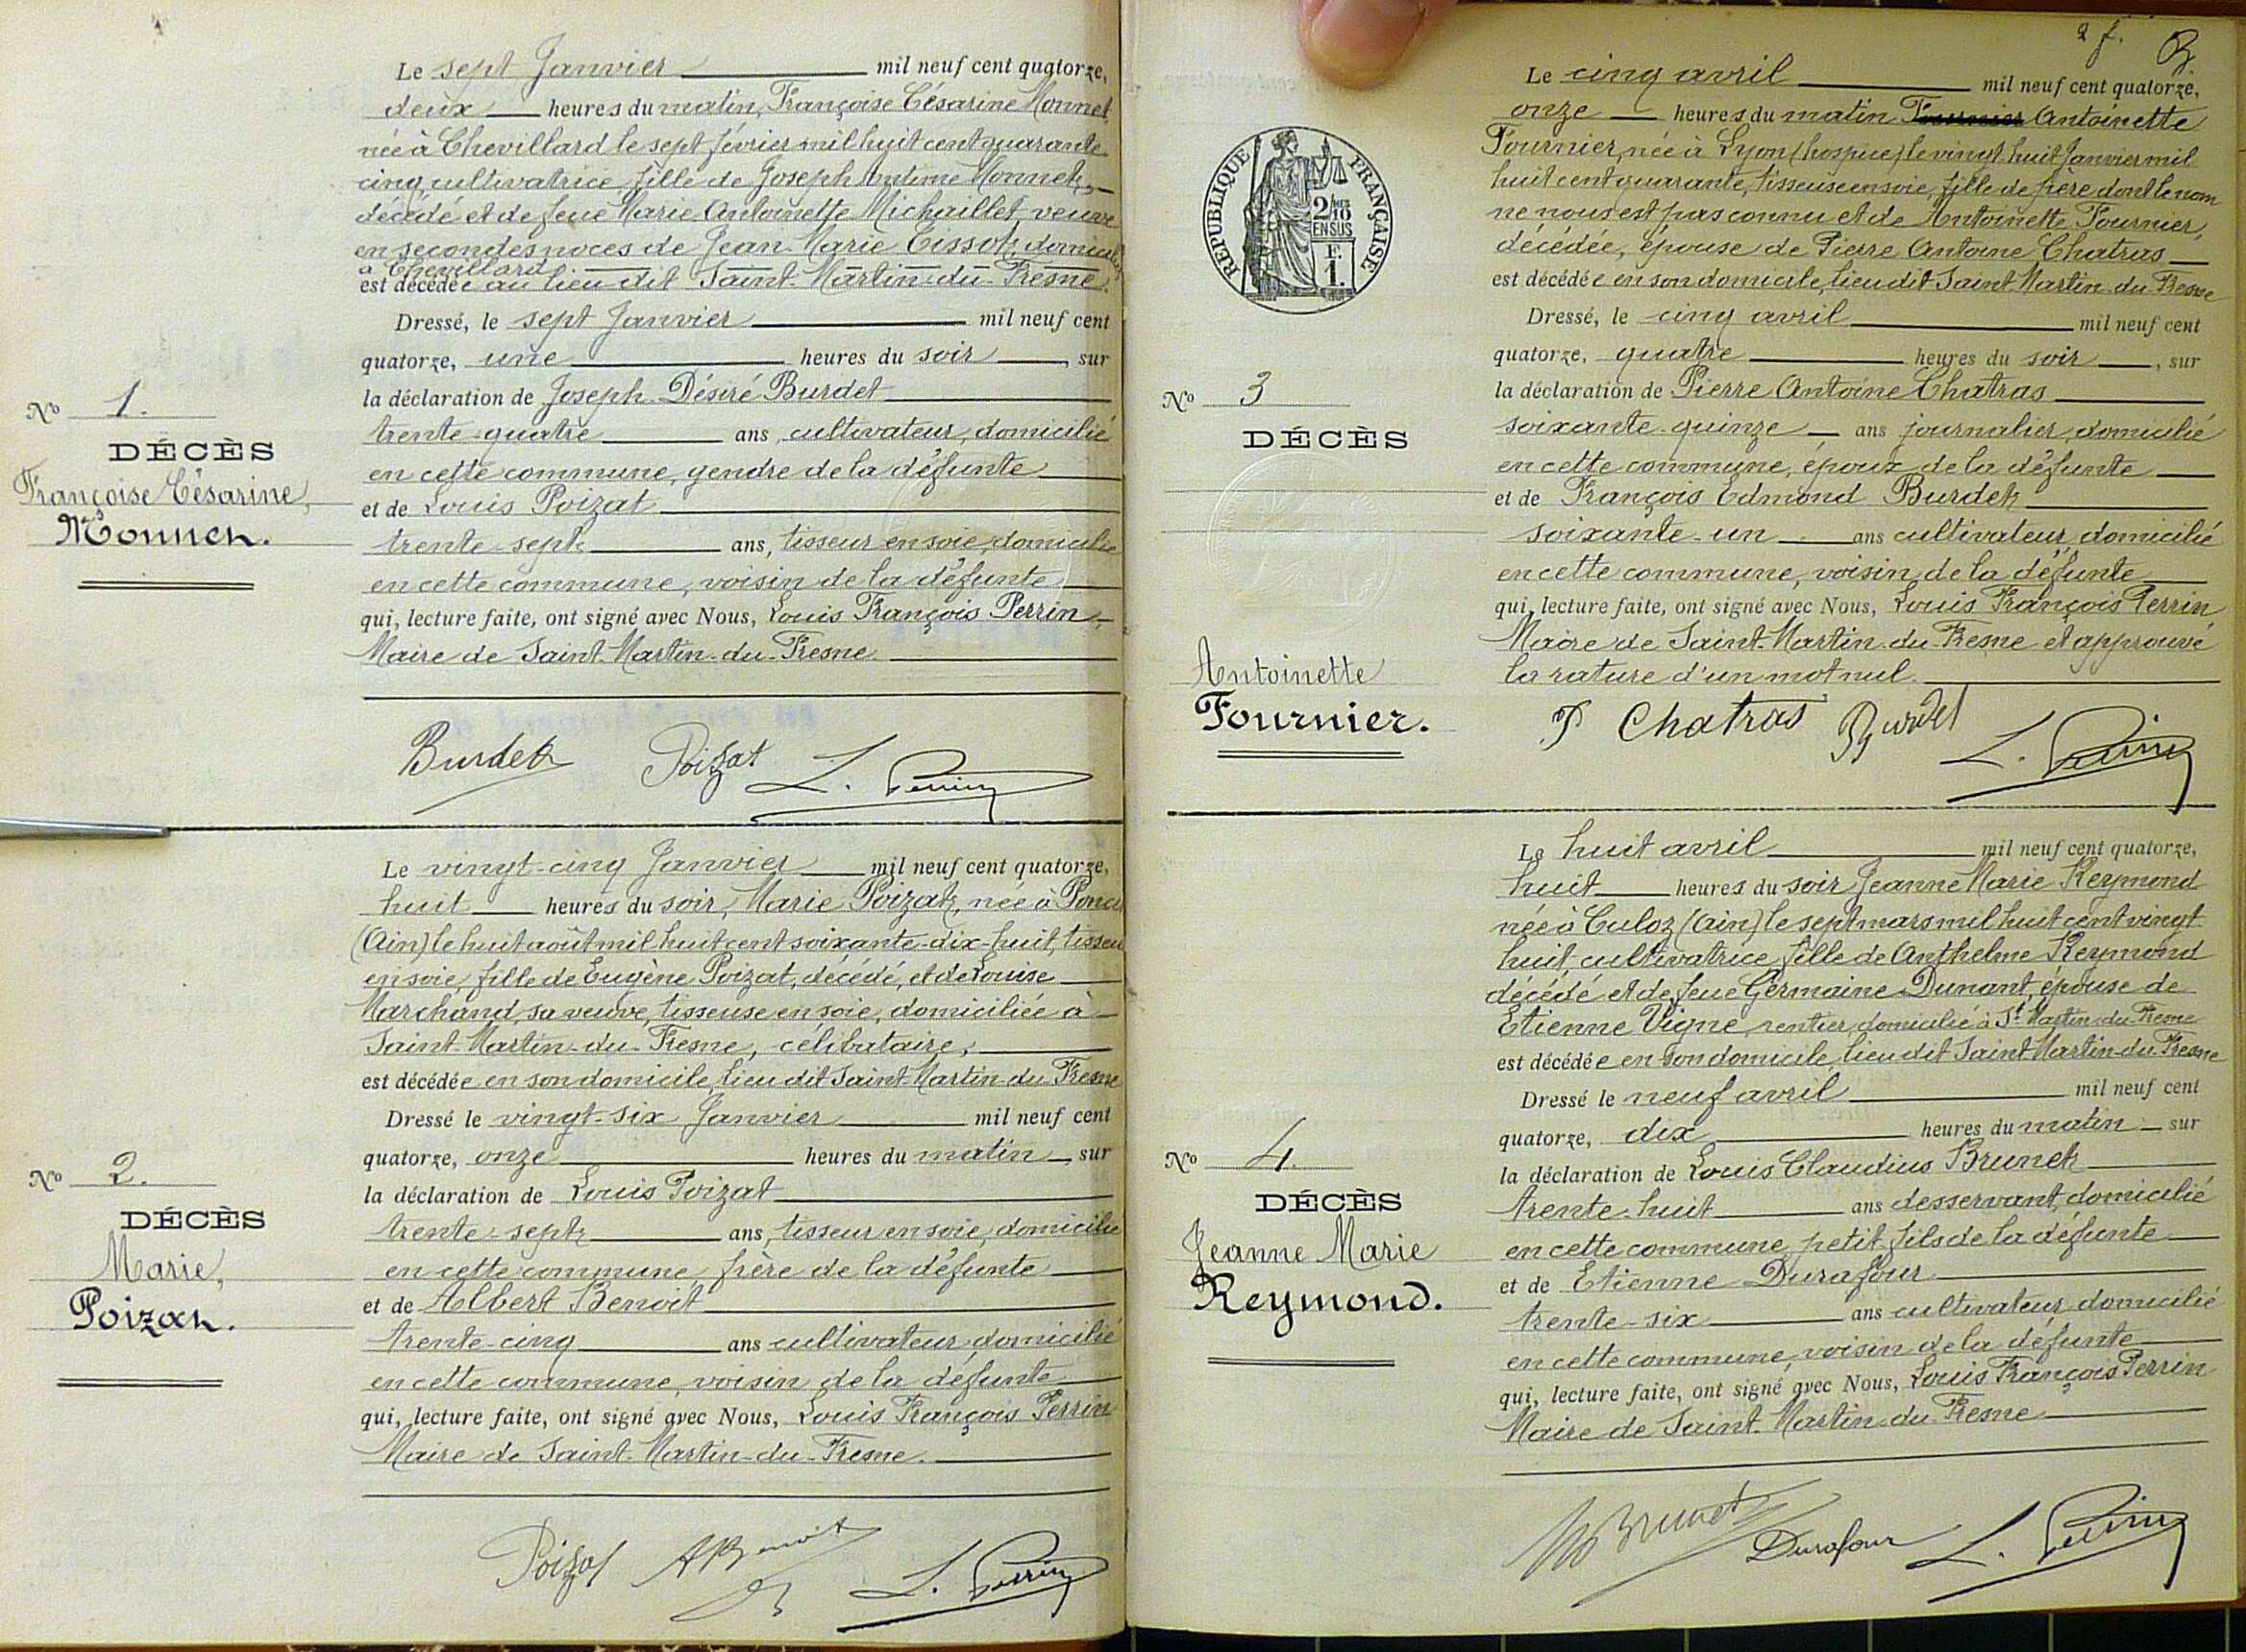 Le sept Janvier mil neuf cent quatorze,
deux heures du matin, Françoise Césarine Monnet
née à Chevillard le sept février mil huit cent quarante
cinq cultivatrice fille de Joseph Monnet,
décédé et de feue Marie Antoinette Michaillet, veuve
en secondes noces de Jean-Marie Tissot, domiciliée
à Chevillard
est décédée au lieu dit Saint-Martin-du-Fresne.
Dressé, le sept Janvier mil neuf cent
quatorze, une heures du soir, sur
la déclaration de Joseph Désiré Burdet
trente-quatre ans, cultivateur, domicilié
en cette commune, gendre de la défunte
et de Louis Poizat
trente-sept ans, tisseur en soie, domicilié
en cette commune, voisin de la défunte
qui, lecture faite, ont signé avec Nous, Louis François Perrin
Maire de Saint-Martin-du-Fresne.
No 1.
DÉCÈS
Françoise Césarine,
Monnet.
Burdet Poizat L. Perrin
Le vingt-cinq Janvier mil neuf cent quatorze,
huit heures du soir, Marie Poizat, née à Poncin
(Ain) le huit août mil huit cent soixante-dix-huit, tisseuse
en soie, fille de Eugène Poizat, décédé, et de Louise
Marchand, sa veuve, tisseuse en soie, domiciliée à
Saint-Martin-du-Fresne, célibataire,
est décédée en son domicile, lieu dit Saint-Martin-du-Fresne
Dressé le vingt-six Janvier mil neuf cent
quatorze, onze heures du matin, sur
la déclaration de Louis Poizat
trente-sept ans, tisseur en soie, domicilié
en cette commune, frère de la défunte
et de Albert Benoit
trente-cinq ans cultivateur, domicilié
en cette commune, voisin de la défunte
qui, lecture faite, ont signé avec Nous, Louis François Perrin
Maire de Saint-Martin-du-Fresne.
No 2.
DÉCÈS
Marie,
Poizat.
Poizat A Benoit L. Perrin
2 f.
RÉPUBLIQUE FRANÇAISE
2/10
EN SUS
F.
1.
Le cinq avril mil neuf cent quatorze,
onze heures du matin Fournier Antoinette
Fournier, née à Lyon (hospice) le vingt-huit Janvier mil
huit cent quarante, tisseuse en soie, fille de père dont le nom
ne nous est pas connu et de Antoinette Fournier,
décédée, épouse de Pierre Antoine Chatras
est décédée en son domicile, lieu dit Saint-Martin-du-Fresne
Dressé, le cinq avril mil neuf cent
quatorze, quatre heures du soir, sur
la déclaration de Pierre Antoine Chatras
soixante-quinze ans journalier, domicilié
en cette commune, époux de la défunte
et de François Edmond Burdet
soixante-un ans cultivateur, domicilié
en cette commune, voisin de la défunte
qui, lecture faite, ont signé avec Nous, Louis François Perrin
Maire de Saint-Martin-du-Fresne et approuvé
la rature d'un mot nul.
No 3
DÉCÈS
Antoinette
Fournier.
P Chatras Burdet L. Perrin
Le huit avril mil neuf cent quatorze,
huit heures du soir Jeanne Marie Reymond
née à Culoz (Ain) le sept mars mil huit cent vingt-
huit, cultivatrice fille de Anthelme Reymond
décédé et de feue Germaine Dunant, épouse de
Etienne Vigne, rentier, domicilié à St Martin-du-Fresne
est décédée en son domicile, lieu dit Saint-Martin-du-Fresne
Dressé le neuf avril mil neuf cent
quatorze, dix heures du matin sur
la déclaration de Louis Claudius Brunet
trente-huit ans desservant, domicilié
en cette commune, petit-fils de la défunte
et de Etienne Durafour
trente-six ans cultivateur, domicilié
en cette commune, voisin de la défunte
qui, lecture faite, ont signé avec Nous, Louis François Perrin
Maire de Saint-Martin-du-Fresne
No 4.
DÉCÈS
Jeanne Marie
Reymond.
Brunet Durafour L. Perrin